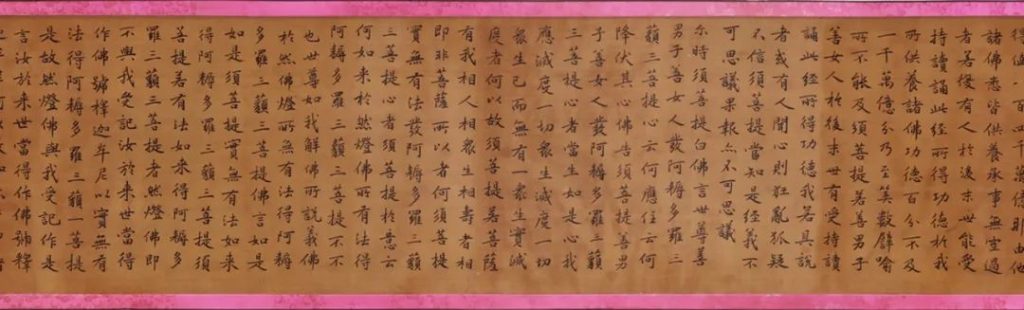 諸佛悉皆供養承事無空過
者若復有人於後末世能受
持讀誦此經所得功德於我
所供養諸佛功德百分不及
一千萬億分乃至筭數譬喻
所不能及須菩提若善男子
善女人於後末世有受持讀
誦此經所得功德我若具說
者或有人聞心則狂亂狐疑
不信須菩提當知是經義不
可思議果報亦不可思議
尒時須菩提白佛言世尊善
男子善女人發阿耨多羅三
藐三菩提心云何應住云何
降伏其心佛告須菩提善男
子善女人發阿耨多羅三藐
三菩提心者當生如是心我
應滅度一切衆生滅度一切
衆生已而無有一衆生實滅
度者何以故須菩提若菩薩
有我相人相衆生相壽者相
即非菩薩所以者何須菩提
實無有法發阿耨多羅三藐
三菩提心者須菩提於意云
何如来於然燈佛所有法得
阿耨多羅三藐三菩提不不
也世尊如我解佛所說義佛
於然佛燈所無有法得阿耨
多羅三藐三菩提佛言如是
如是須菩提實無有法如来
得阿耨多羅三藐三菩提須
菩提若有法如来得阿耨多
羅三藐三菩提者然燈佛即
不與我受記汝於来世當得
作佛號釋迦牟尼以實無有
法得阿耨多羅三藐三菩提
是故然燈佛與我受記作是
言汝於来世當得作佛號釋